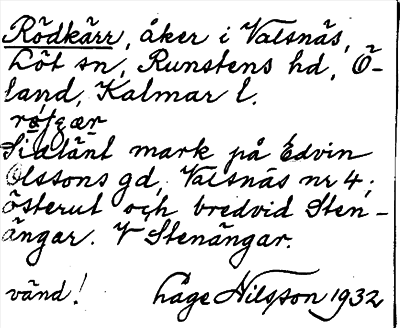 Rödkärr, åker i Valsnäs,
Löt sn, Runstens hd, Ö-
land, Kalmar l.
Sidlänt mark på Edvin
Olssons gd, Valsnäs nr 4;
österut och bredvid Sten-
ängar. V Stenängar.
vänd! Håge Nilsson 1932